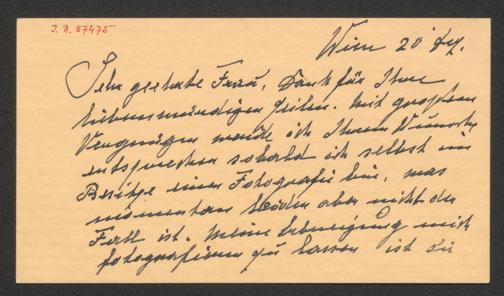 J. N. 87475
Wien 20 Dez.
Sehr geehrte Frau, Dank für Ihre
liebenswürdigen Zeilen. Mit großem
Vergnügen werde ich Ihrem Wunsche
entsprechen sobald ich selbst im
Besitze einer Fotografie bin, was
momentan leider aber nicht der
Fall ist. Meine Abneigung mich
fotografieren zu lassen ist die